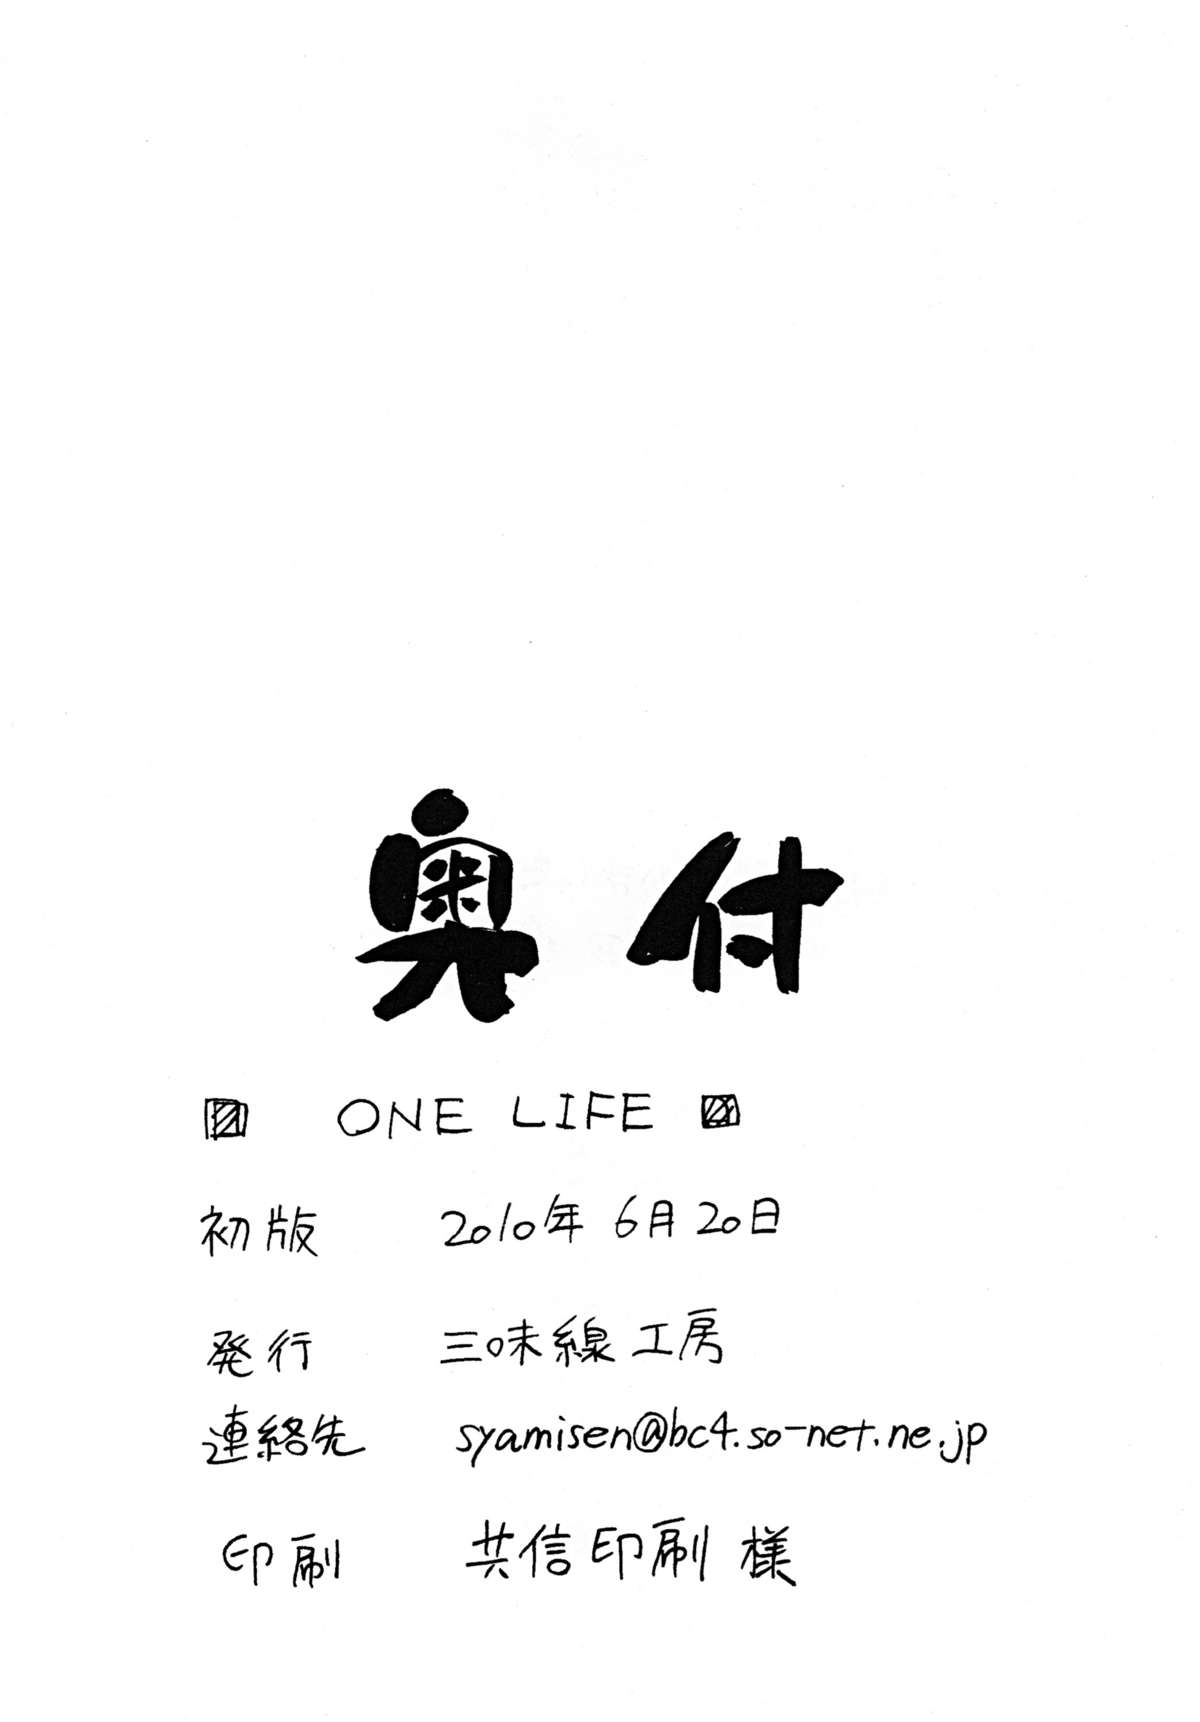 奥付
ONE LIFE
初版 2010年 6月20日
発行 三味線工房
連絡先 syamisen@bc4.so-net.ne.jp
印刷 共信印刷 様